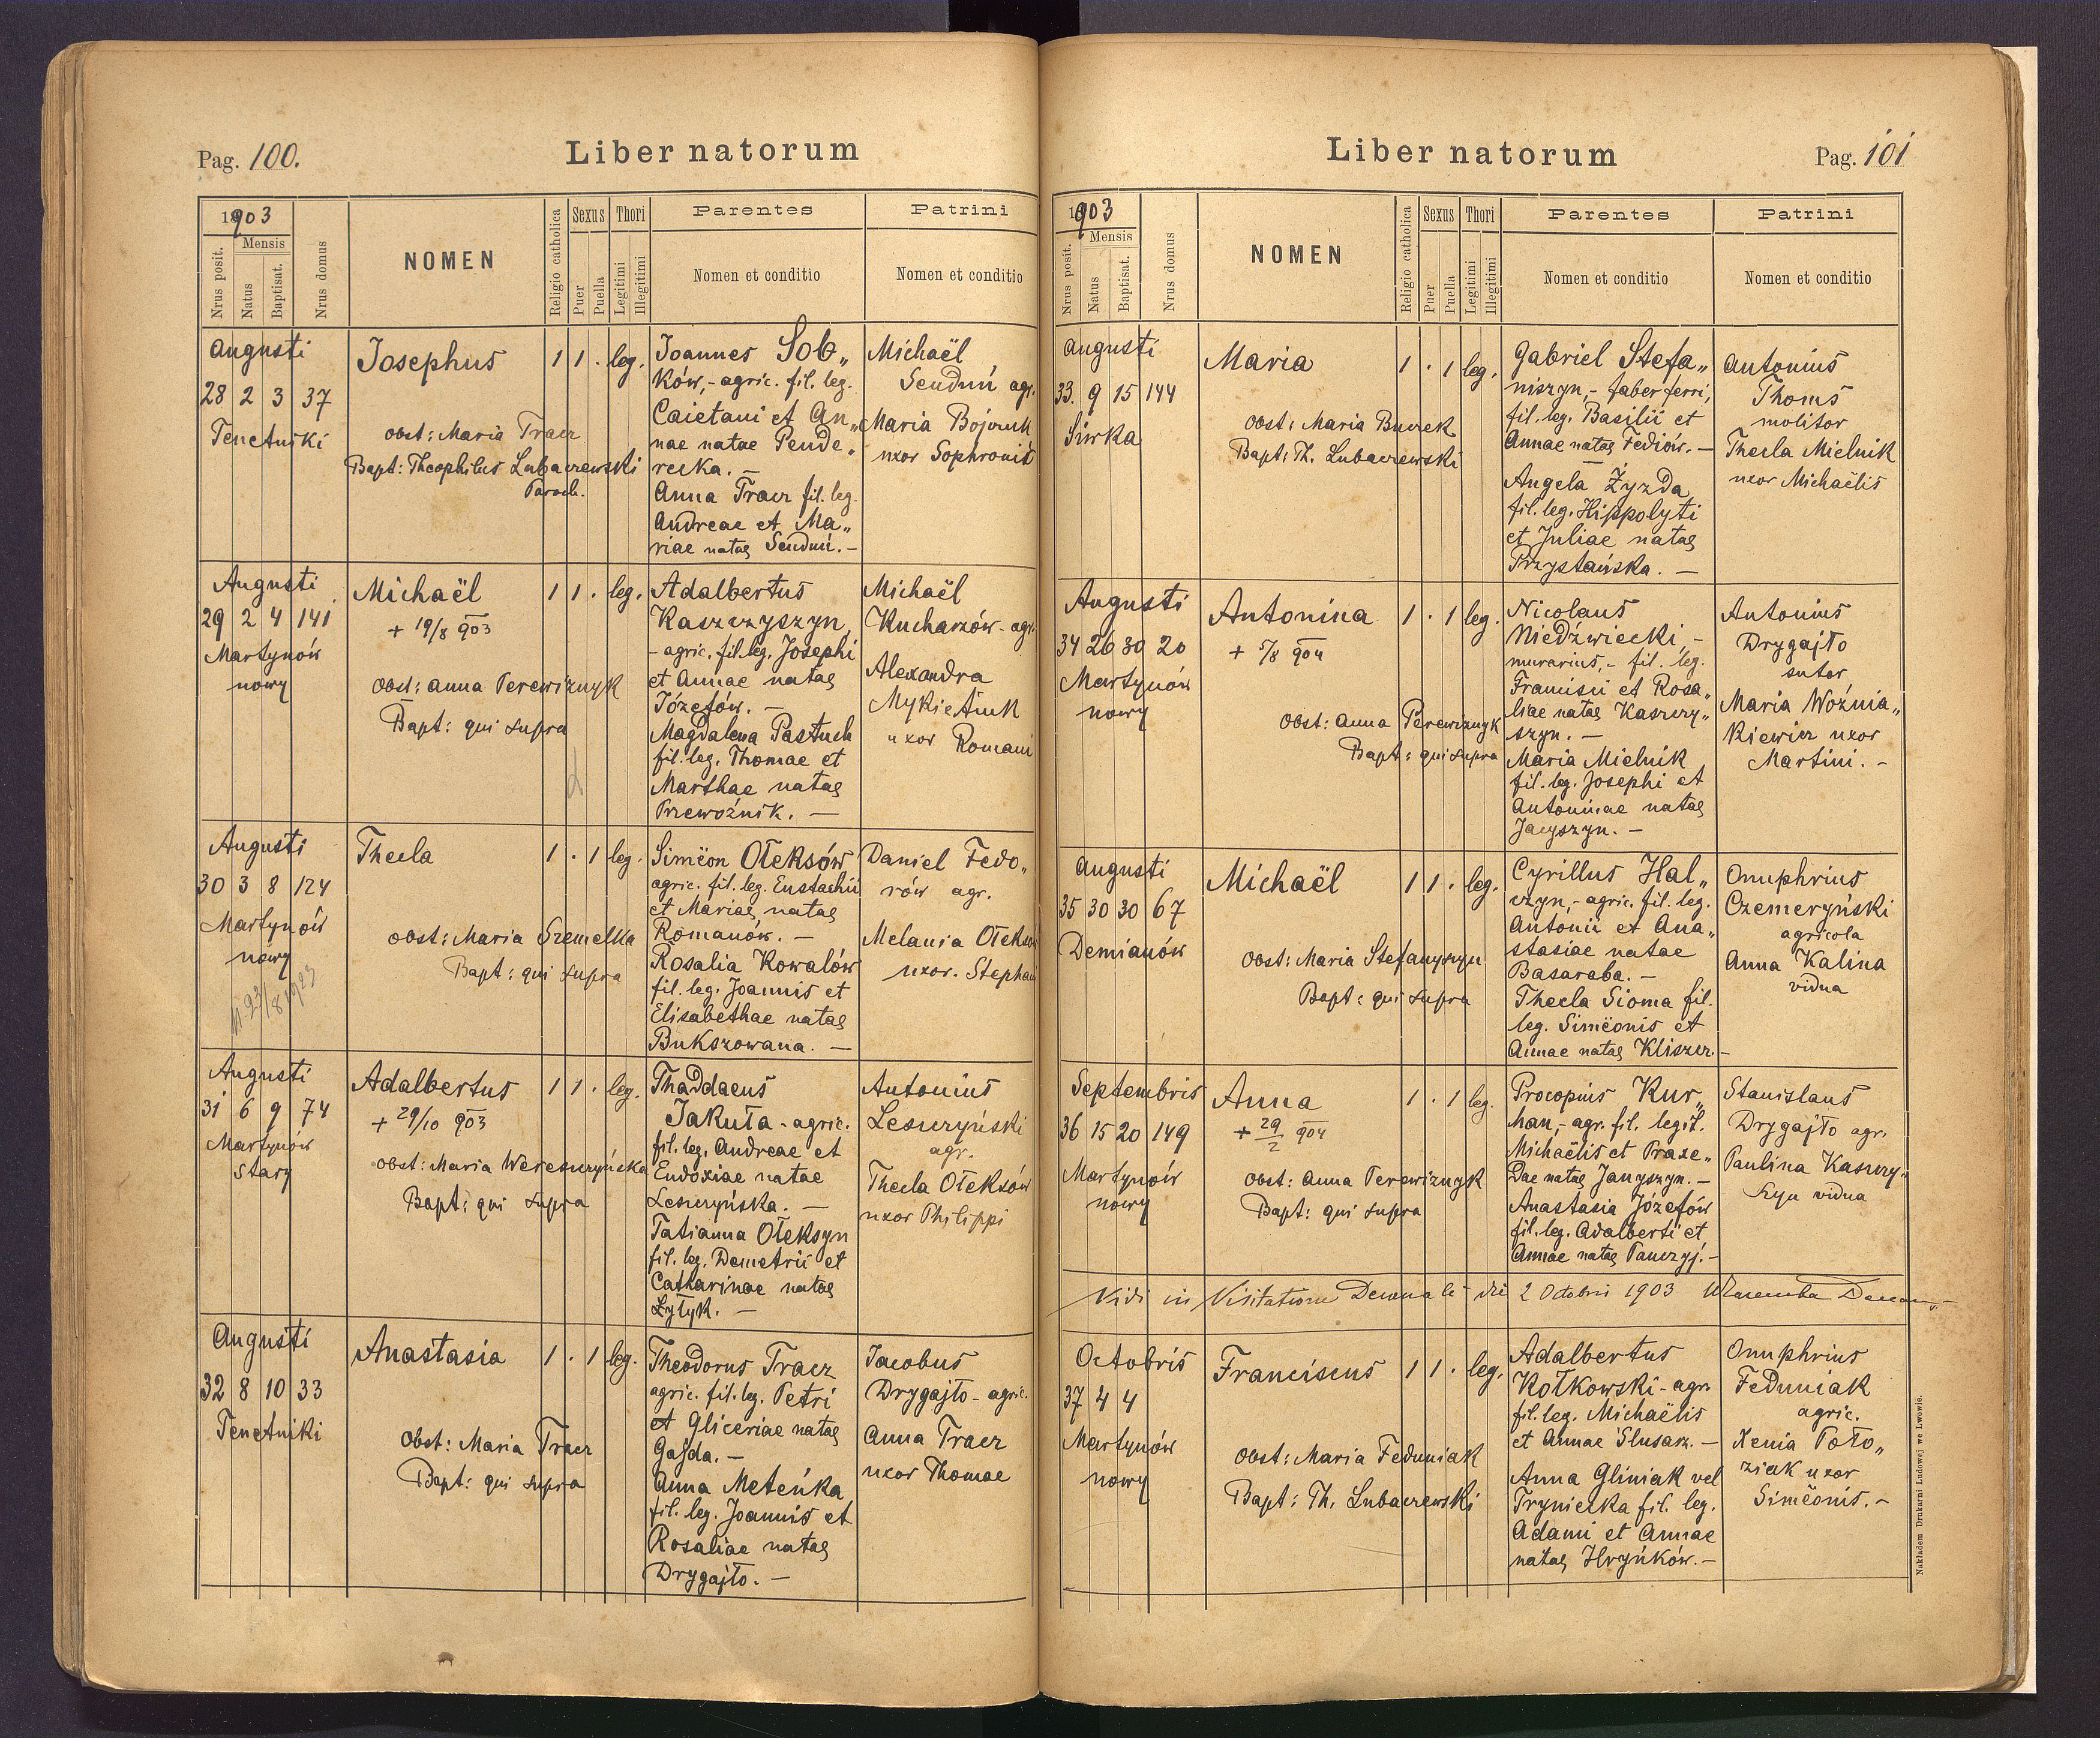 Pag. 100.
Liber natorum
1903
Nrus posit.
Mensis
Natus
Baptisat.
Nrus domus
NOMEN
Religio catholica
Sexus
Puer
Puella
Thori
Legitimi
Illegitimi
Parentes
Nomen et conditio
Patrini
Nomen et conditio
Augusti
28 2 3 37
Tenetniki
Josephus
Obst: Maria Tracz
Bapt: Theophilus Lubaczewski
Paroch.
1 1 . leg.
Joannes Sob„
ków,- agric. fil. leg.
Caietani et An„
nae natae Pende„
recka. —
Anna Tracz fil. leg.
Andreae et Ma„
riae natae Senduń. —
Michaël
Senduń agr.
Maria Bojczuk
uxor Sophronii
Augusti
29 2 4 141
Martynów
nowy
Michaël
+ 19/8 903
Obst: Anna Perewiznyk
Bapt: qui supra
1 1 . leg.
Adalbertus
Kaszczyszyn,
- agric. fil. leg. Josephi
et Annae natae
Józefów. —
Magdalena Pastuch
fil. leg. Thomae et
Marthae natae
Przewoźnik. —
Michaël
Kucharzów - agr.
Alexandra
Mykietiuk
uxor Romani
Augusti
30 3 8 124
Martynów
nowy
23/8 1923
Thecla
Obst: Maria Szemelka
Bapt: qui supra
1 . 1 leg.
Simëon Ołeksów
agric. fil. leg. Eustachii
et Mariae natae
Romanów. —
Rosalia Kowalów
fil. leg. Joannis et
Elisabethae natae
Bukszowana. —
Daniel Fedo„
rów agr.
Melania Ołeksów
uxor. Stephani
Augusti
31 6 9 74
Martynów
Stary
Adalbertus
+ 29/10 903
Obst: Maria Wereszczyńska
Bapt: qui supra
1 1 . leg.
Thaddaeus
Jakuta - agric.
fil. leg. Andreae et
Eudoxiae natae
Leszczyńska. —
Tatianna Ołeksyn
fil. leg. Demetrii et
Catharinae natae
Łytyk. —
Antonius
Leszczyński
agr.
Thecla Ołeksów
uxor Philippi
Augusti
32 8 10 33
Tenetniki
Anastasia
Obst: Maria Tracz
Bapt: qui supra
1 . 1 leg.
Theodorus Tracz
agric. fil. leg. Petri
et Gliceriae natae
Gajda. —
Anna Meteńka
fil. leg. Joannis et
Rosaliae natae
Drygajło. —
Jacobus
Drygajło - agric.
Anna Tracz
uxor Thomae
Liber natorum
Pag. 101
1903
Nrus posit.
Mensis
Natus
Baptisat.
Nrus domus
NOMEN
Religio catholica
Sexus
Puer
Puella
Thori
Legitimi
Illegitimi
Parentes
Nomen et conditio
Patrini
Nomen et conditio
Augusti
33. 9 15 144
Siwka
Maria
Obst: Maria Burek
Bapt: Th. Lubaczewski
1 . 1 leg.
Gabriel Stefa„
niszyn,- faber ferri,
fil. leg. Basilii et
Annae natae Fediów. —
Angela Żyzda
fil. leg. Hippolyti
et Juliae natae
Przystańska. —
Antonius
Thoms
molitor
Thecla Mielnik
uxor Michaëlis
Augusti
34 26 30 20
Martynów
nowy
Antonina
+ 5/8 904
Obst: Anna Perewiznyk
Bapt: qui supra
1 . 1 leg.
Nicolaus
Niedźwiecki,-
murarius,- fil. leg.
Francisci et Rosa„
liae natae Kaszczy„
szyn. —
Maria Mielnik
fil. leg. Josephi et
Antoninae natae
Jacyszyn. —
Antonius
Drygajło
sutor
Maria Woźnia„
kiewicz uxor
Martini. -
Augusti
35 30 30 67
Demianów
Michaël
Obst: Maria Stefanyszyn
Bapt: qui supra
1 1 . leg.
Cyrillus Hal„
czyn,- agric. fil. leg.
Antonii et Ana„
stasiae natae
Basaraba. —
Thecla Sioma fil.
leg. Simëonis et
Annae natae Kliszcz. —
Onuphrius
Czemeryński
agricola
Anna Kalina
vidua
Septembris
36 15 20 149
Martynów
nowy
Anna
+ 29/2 904
Obst: Anna Perewiznyk
Bapt: qui supra
1 . 1 leg.
Procopius Kur„
han,- agr. fil. legit.
Michaëlis et Praxe„
dae natae Janyszyn. —
Anastasia Józefów
fil. leg. Adalberti et
Annae natae Panczyj. —
Stanislaus
Drygajło agr.
Paulina Kaszczy„
szyn vidua
Vidi in Visitatione Decanali die 2 Octobris 1903
Octobris
37 4 4
Martynów
nowy
Franciscus
Obst: Maria Feduniak
Bapt: Th. Lubaczewski
1 1 . leg.
Adalbertus
Kołkowski - agr.
fil. leg. Michaëlis
et Annae Slusarz. —
Anna Gliniak vel
Tryniecka fil. leg.
Adami et Annae
natae Hryńków. —
Onuphrius
Feduniak
agric.
Xenia Poło„
ziak uxor
Simëonis. -
Nakładem Drukarni Ludowej we Lwowie.